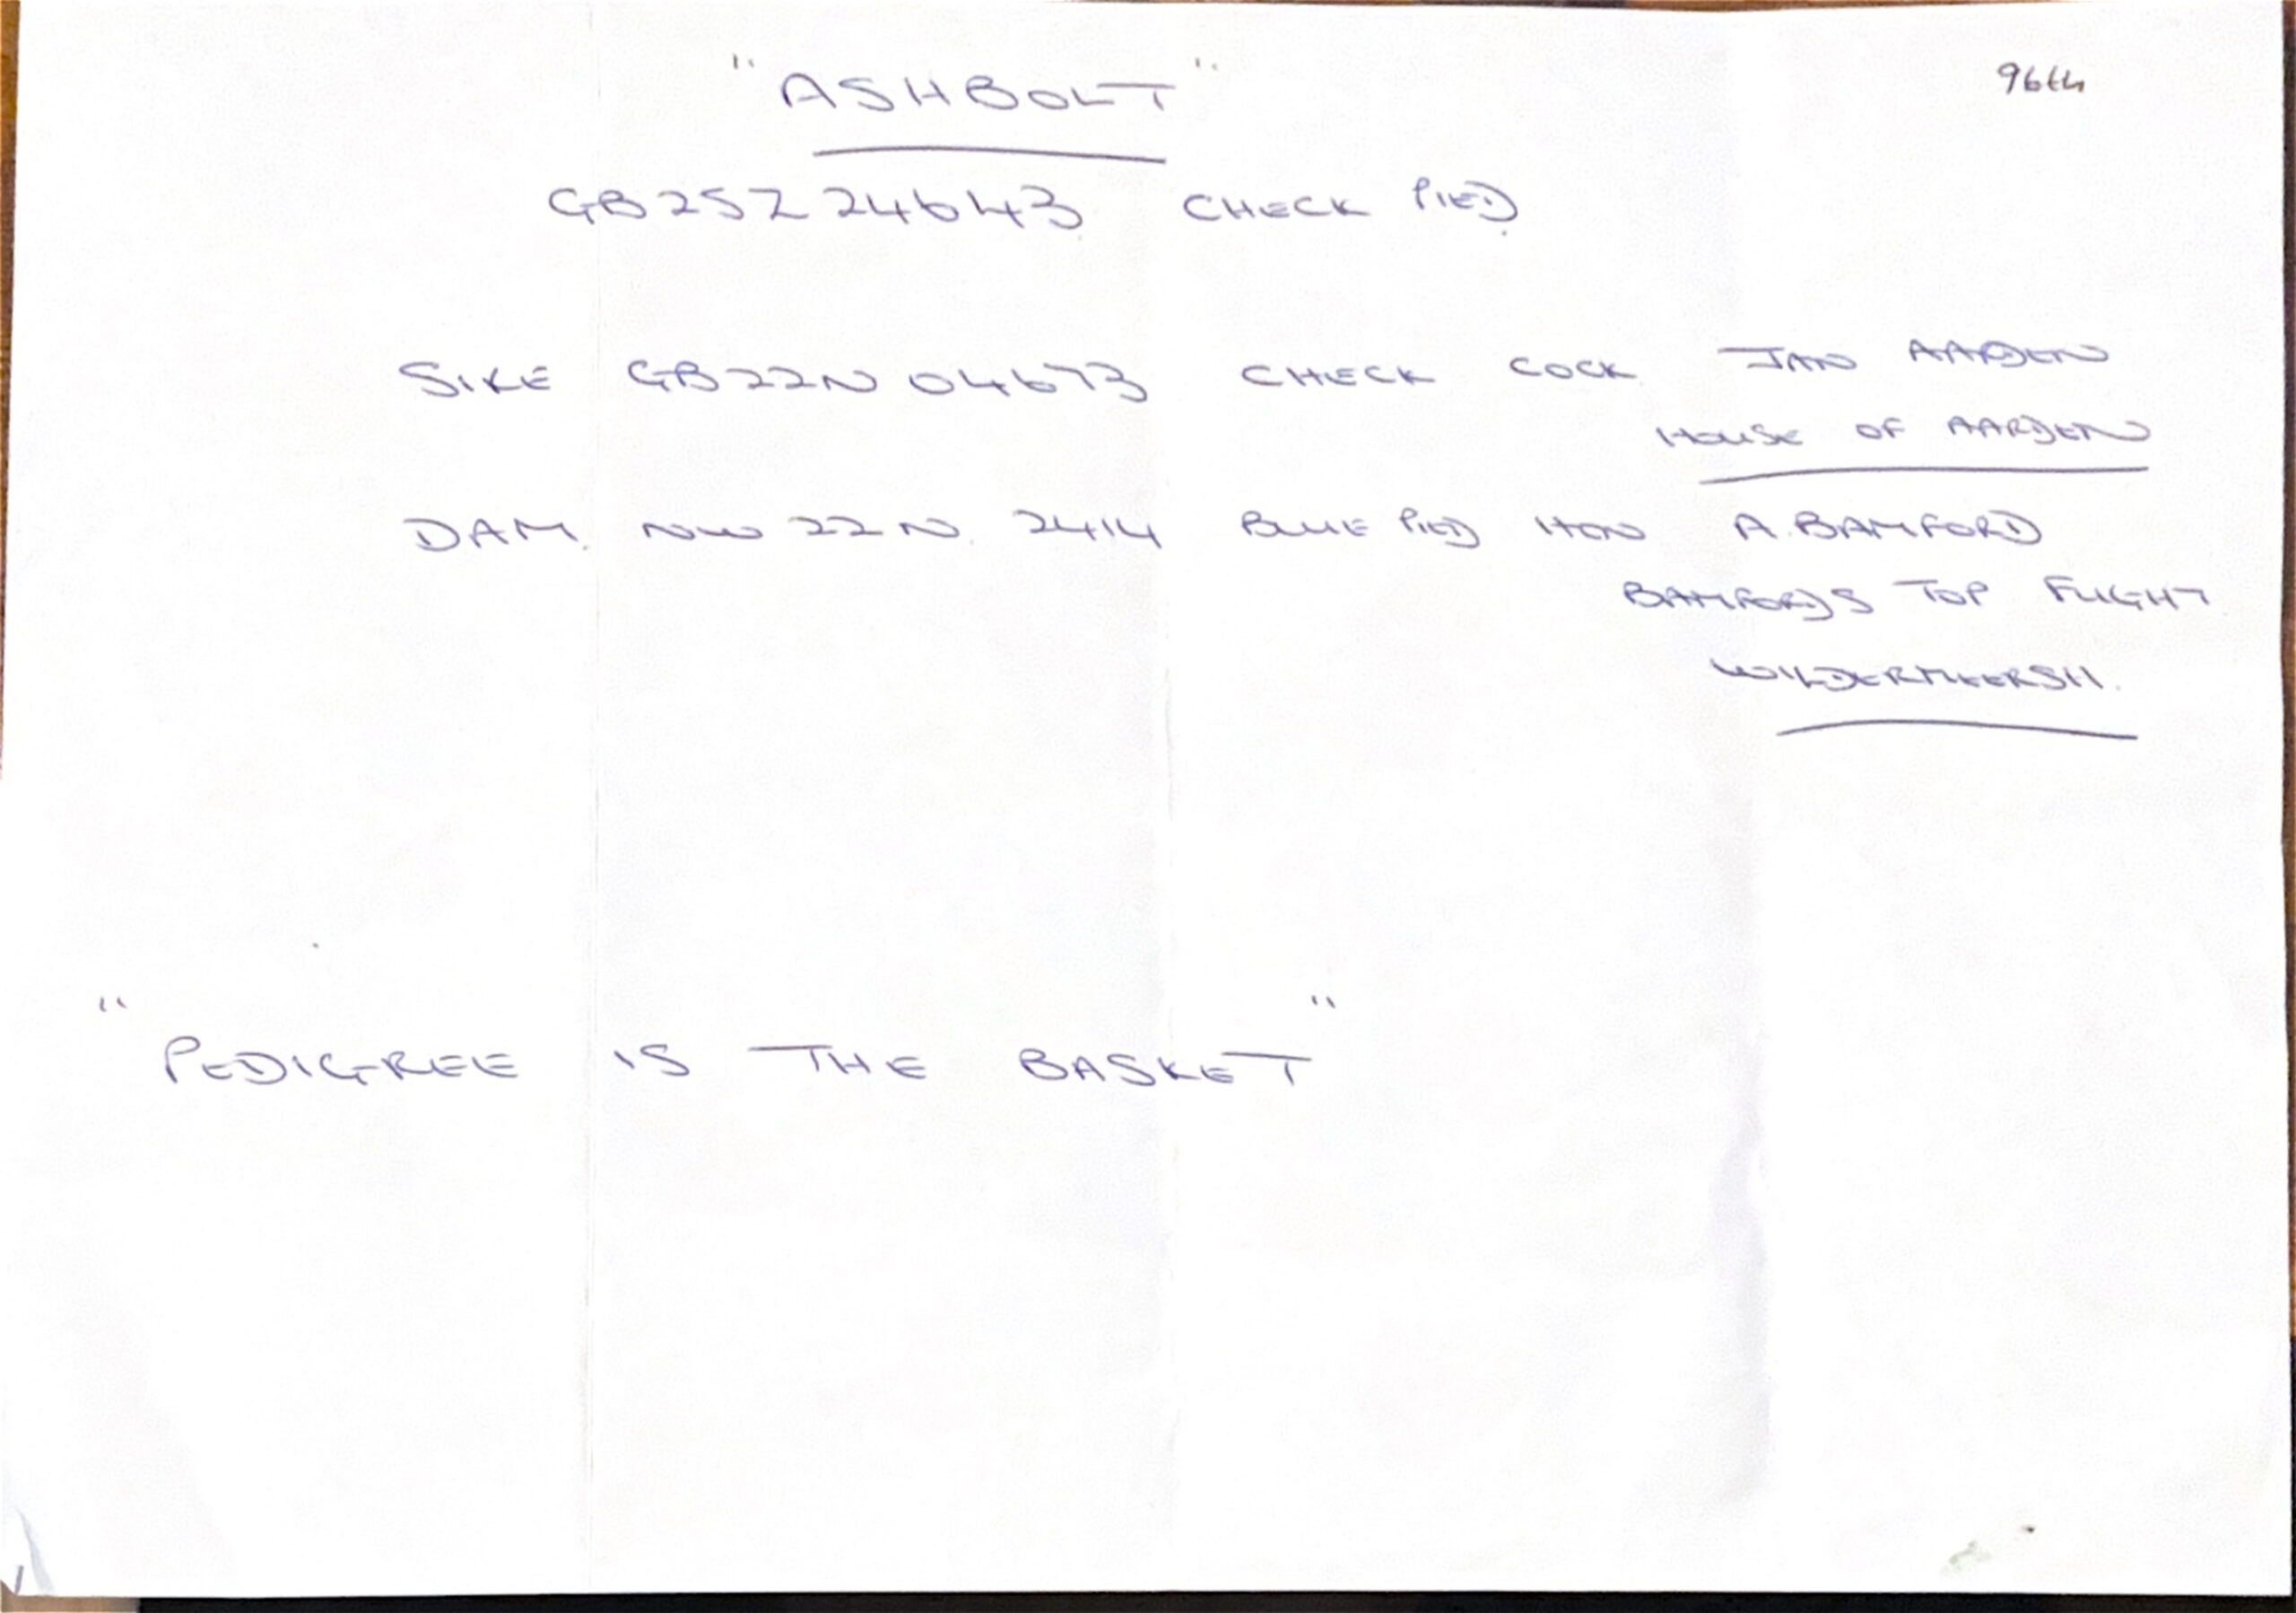 "ASHBOLT"
96th
GB25Z24643 CHECK PIED
SIRE GB22N04673 CHECK COCK JAN AARDEN
HOUSE OF AARDEN
DAM. NW22N. 2414 BLUE PIED HEN A. BAMFORD
BAMFORDS TOP FLIGHT
WILDERMEERSH.
"PEDIGREE IS THE BASKET"